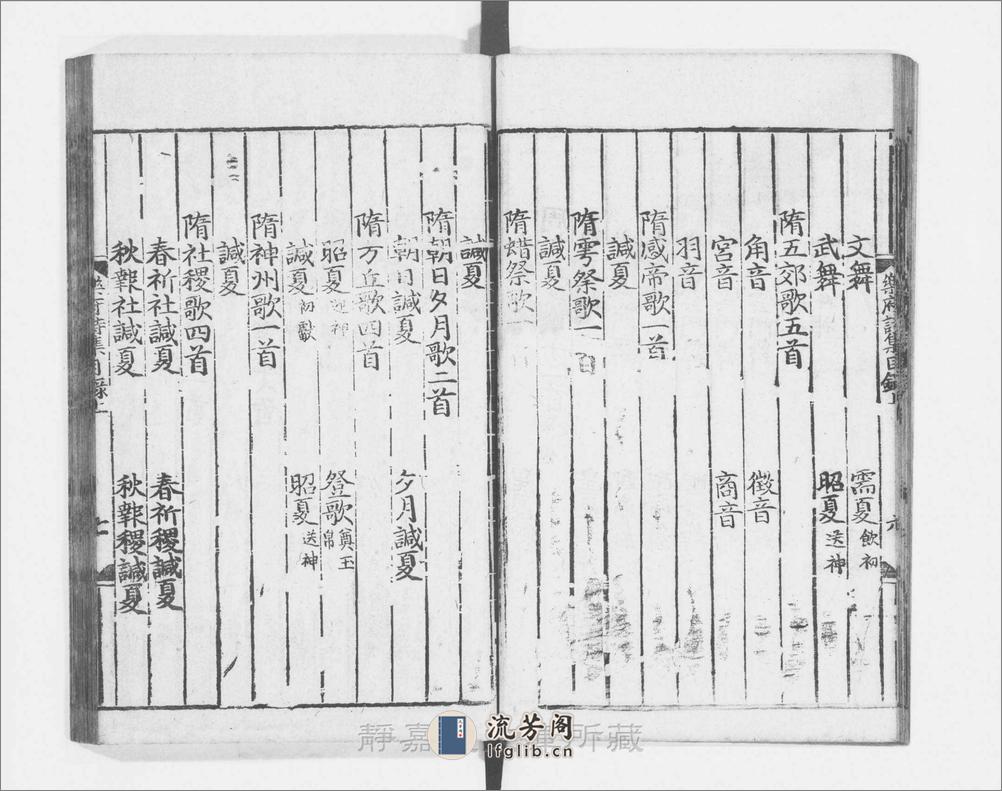 文舞　需夏飲初
武舞　昭夏送神
隋五郊歌五首
角音　徵音
宮音　商音
羽音
隋感帝歌一首
誠夏
隋雩祭歌一首
誠夏
隋蜡祭歌一
誠夏
隋朝日夕月歌二首
朝日誠夏　夕月誠夏
隋方丘歌四首
昭夏迎神　登歌奠玉帛
誠夏初獻　昭夏送神
隋神州歌一首
誠夏
隋社稷歌四首
春祈社誠夏　春祈稷誠夏
秋報社誠夏　秋報稷誠夏
樂府詩集目錄上
樂府詩集目錄上　七
靜嘉 所藏
流芳阁
lfglib.cn